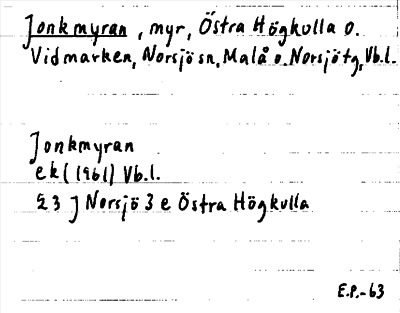 Jonkmyran, myr, Östra Högkulla o.
Vidmarken, Norsjö sn, Malå o. Norsjö tg, Vb.l.
Jonkmyran
ek (1961) Vb.l.
23 J Norsjö 3 e Östra Högkulla
E.P.-63